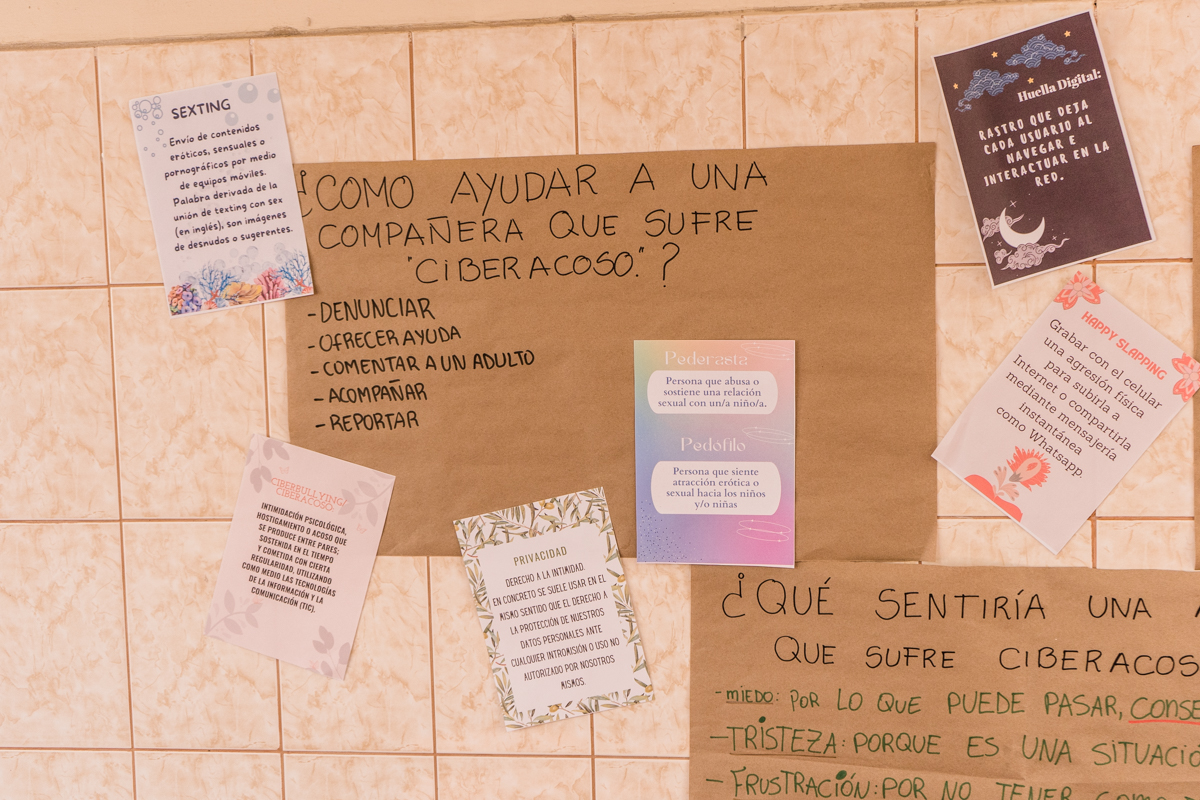 SEXTING
Envío de contenidos
eróticos, sensuales o
pornográficos por medio
de equipos móviles.
Palabra derivada de la
unión de texting con sex
(en inglés), son imágenes
de desnudos o sugerentes.
¿COMO AYUDAR A UNA
COMPAÑERA QUE SUFRE
"CIBERACOSO."?
-DENUNCIAR
-OFRECER AYUDA
-COMENTAR A UN ADULTO
-ACOMPAÑAR
-REPORTAR
Huella Digital:
RASTRO QUE DEJA
CADA USUARIO AL
NAVEGAR E
INTERACTUAR EN LA
RED.
HAPPY SLAPPING
Grabar con el celular
una agresión física
para subirla a
Internet o compartirla
mediante mensajería
instantánea
como Whatsapp.
Pederasta
Persona que abusa o
sostiene una relación
sexual con un/a niño/a.
Pedófilo
Persona que siente
atracción erótica o
sexual hacia los niños
y/o niñas
CIBERBULLYING/
CIBERACOSO
INTIMIDACIÓN PSICOLÓGICA,
HOSTIGAMIENTO O ACOSO QUE
SE PRODUCE ENTRE PARES;
SOSTENIDA EN EL TIEMPO
Y COMETIDA CON CIERTA
REGULARIDAD, UTILIZANDO
COMO MEDIO LAS TECNOLOGÍAS
DE LA INFORMACIÓN Y LA
COMUNICACIÓN (TIC).
PRIVACIDAD
DERECHO A LA INTIMIDAD.
EN CONCRETO SE SUELE USAR EN EL
MISMO SENTIDO QUE EL DERECHO A
LA PROTECCIÓN DE NUESTROS
DATOS PERSONALES ANTE
CUALQUIER INTROMISIÓN O USO NO
AUTORIZADO POR NOSOTROS
MISMOS.
¿QUÉ SENTIRÍA UNA
QUE SUFRE CIBERACOS
-MIEDO: POR LO QUE PUEDE PASAR, CONSE
-TRISTEZA: PORQUE ES UNA SITUACIÓ
-FRUSTRACIÓN: POR NO TENER COMO